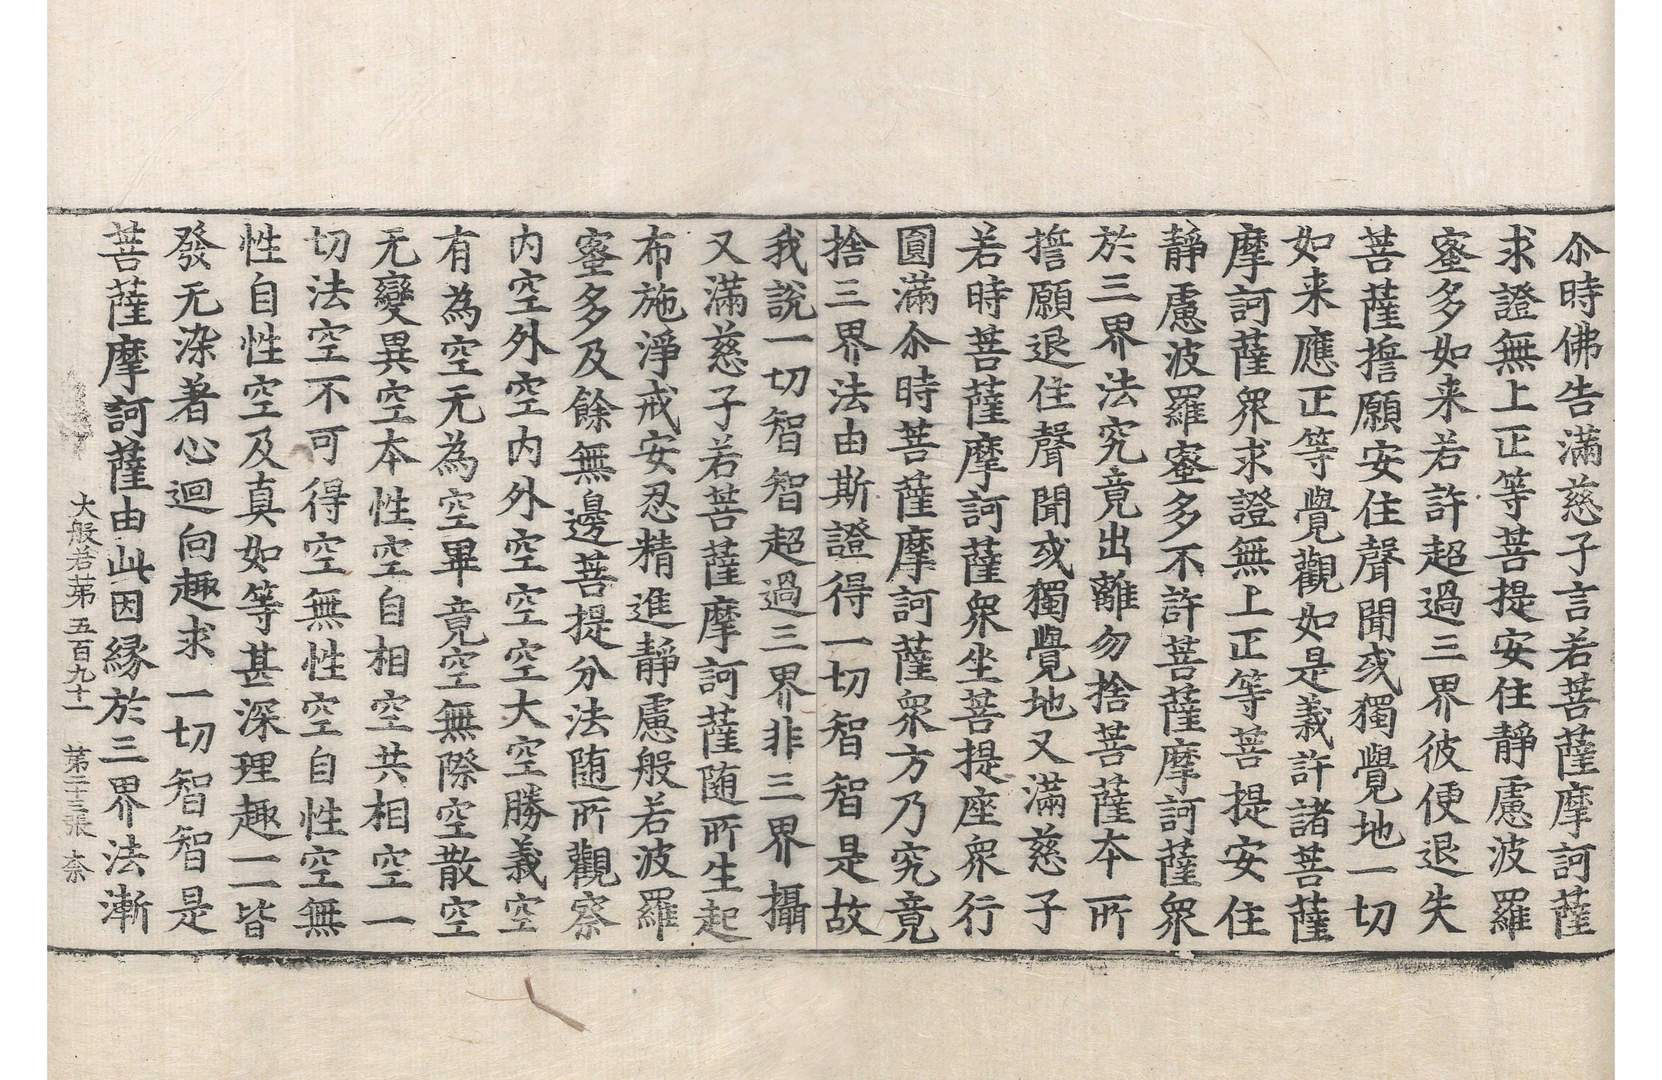 尒時佛告滿慈子言若菩薩摩訶薩
求證無上正等菩提安住靜慮波羅
蜜多如来若許超過三界彼便退失
菩薩擔願安住聲聞或獨覺地一切
如来應正等覺觀如是義許諸菩薩
摩訶薩衆求證無上正等菩提安住
靜慮波羅蜜多不許菩薩摩訶薩衆
於三界法究竟出離勿捨菩薩本所
擔願退住聲聞或獨覺地又滿慈子
若時菩薩摩訶薩衆坐菩提座衆行
圓滿尒時菩薩摩訶薩衆方乃究竟
捨三界法由斯證得一切智智是故
我說一切智智超過三界非三界攝
又滿慈子若菩薩摩訶薩随所生起
布施淨戒安忍精進靜慮般若波羅
蜜多及餘無邊菩提分法随所觀察
内空外空内外空空空大空勝義空
有為空无為空畢竟空無際空散空
无變異空本性空自相空共相空一
切法空不可得空無性空自性空無
性自性空及真如等甚深理趣一一皆
發无染著心迴向趣求一切智智是
菩薩摩訶薩由此因縁於三界法漸
大般若苐五百九十一 苐二十三張 柰